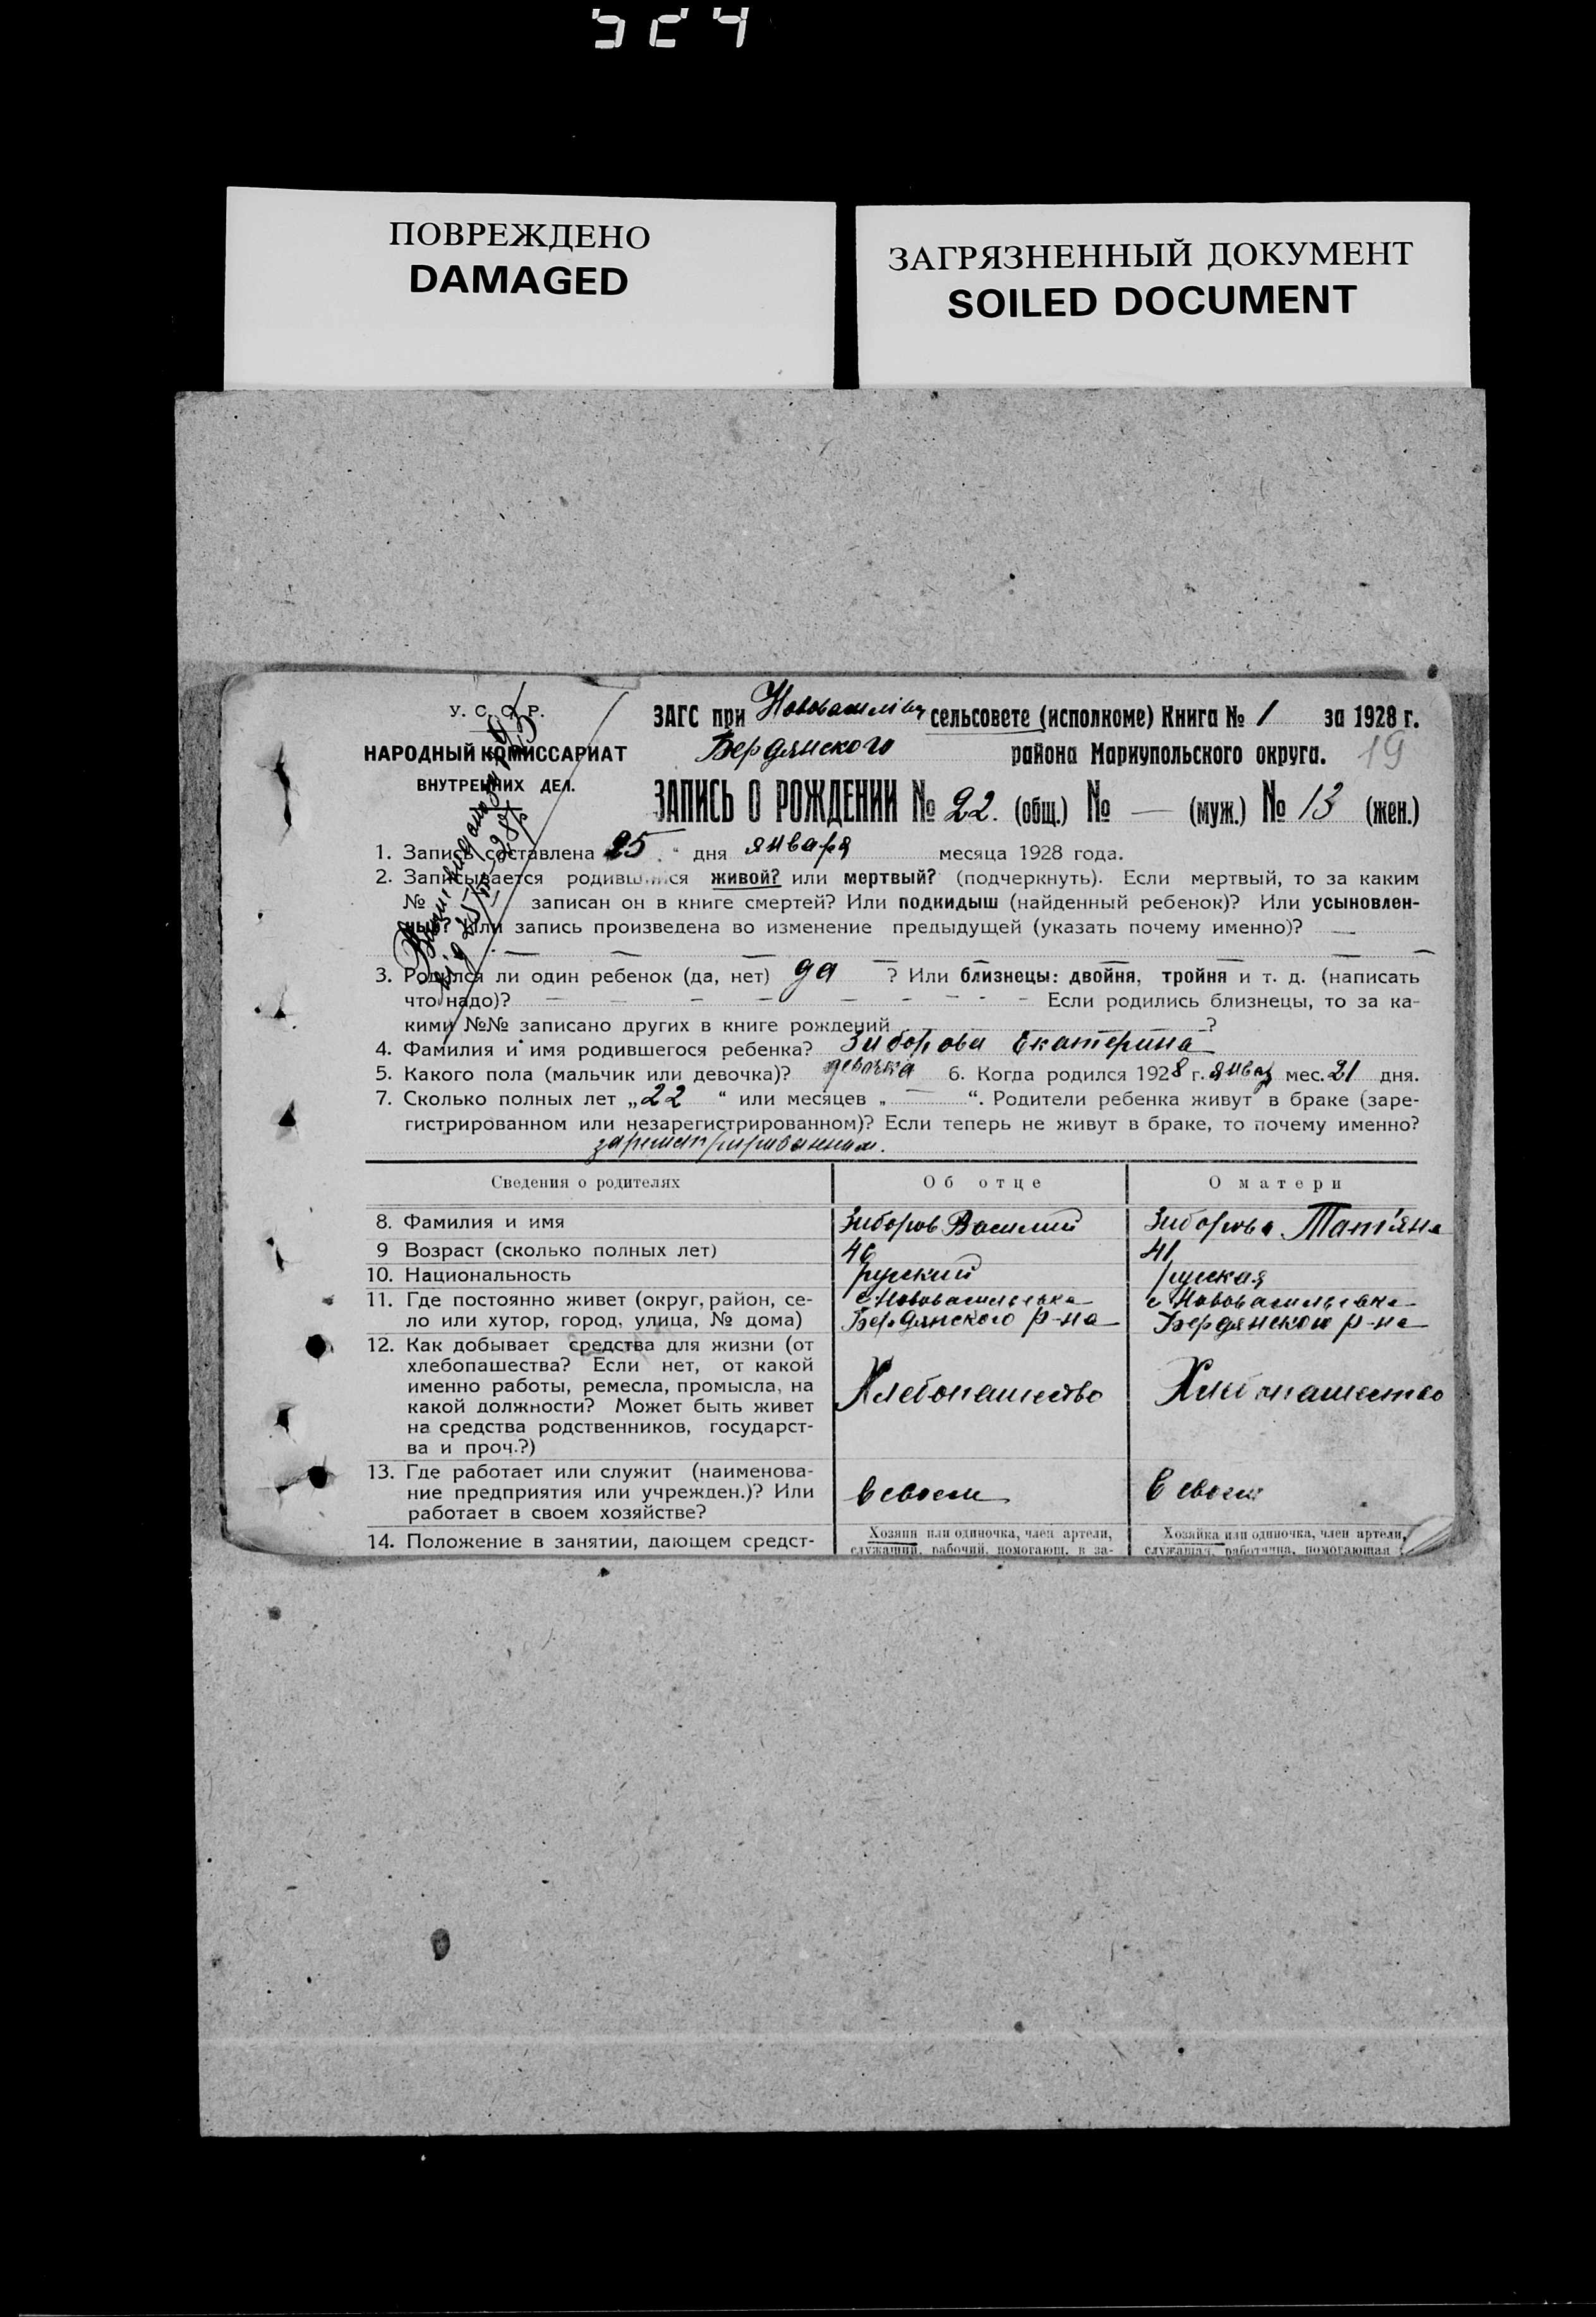 524
ПОВРЕЖДЕНО
DAMAGED
ЗАГРЯЗНЕННЫЙ ДОКУМЕНТ
SOILED DOCUMENT
У. С. С. Р.
НАРОДНЫЙ КОМИССАРИАТ
ВНУТРЕННИХ ДЕЛ.
ЗАГС при сельсовете (исполкоме) Книга № 1 за 1928 г.
Бердянского района Мариупольского округа.
19
ЗАПИСЬ О РОЖДЕНИИ № 22. (общ.) № — (муж.) № 13 (жен.)
1. Запись составлена 25 " дня января месяца 1928 года.
2. Записывается родившийся живой? или мертвый? (подчеркнуть). Если мертвый, то за каким
№ записан он в книге смертей? Или подкидыш (найденный ребенок)? Или усыновлен-
ный? Или запись произведена во изменение предыдущей (указать почему именно)? —
3. Родился ли один ребенок (да, нет) да ? Или близнецы: двойня, тройня и т. д. (написать
что надо)? — — — — — — — — Если родились близнецы, то за ка-
кими №№ записано других в книге рождений ?
4. Фамилия и имя родившегося ребенка? Зиборова Екатерина
5. Какого пола (мальчик или девочка)? девочка 6. Когда родился 1928 г. январ мес. 21 дня.
7. Сколько полных лет „ 22 “ или месяцев „ — “. Родители ребенка живут в браке (заре-
гистрированном или незарегистрированном)? Если теперь не живут в браке, то почему именно?
зарегистрированном.
Сведения о родителях Об отце О матери
8. Фамилия и имя Зиборов Василий Зиборова Тат'яна
9 Возраст (сколько полных лет) 41
10. Национальность русский русская
11. Где постоянно живет (округ, район, се- с. Нововасильевка с. Нововасильевка
ло или хутор, город, улица, № дома) Бердянского р-на Бердянского р-на
12. Как добывает средства для жизни (от
хлебопашества? Если нет, от какой
именно работы, ремесла, промысла, на Хлебопашество Хлебопашество
какой должности? Может быть живет
на средства родственников, государст-
ва и проч.?)
13. Где работает или служит (наименова-
ние предприятия или учрежден.)? Или в своем в своем
работает в своем хозяйстве?
14. Положение в занятии, дающем средст- Хозяин или одиночка, член артели, Хозяйка или одиночка, член артели,
служащий, рабочий, помогающ. в за- служащая, работница, помогающая